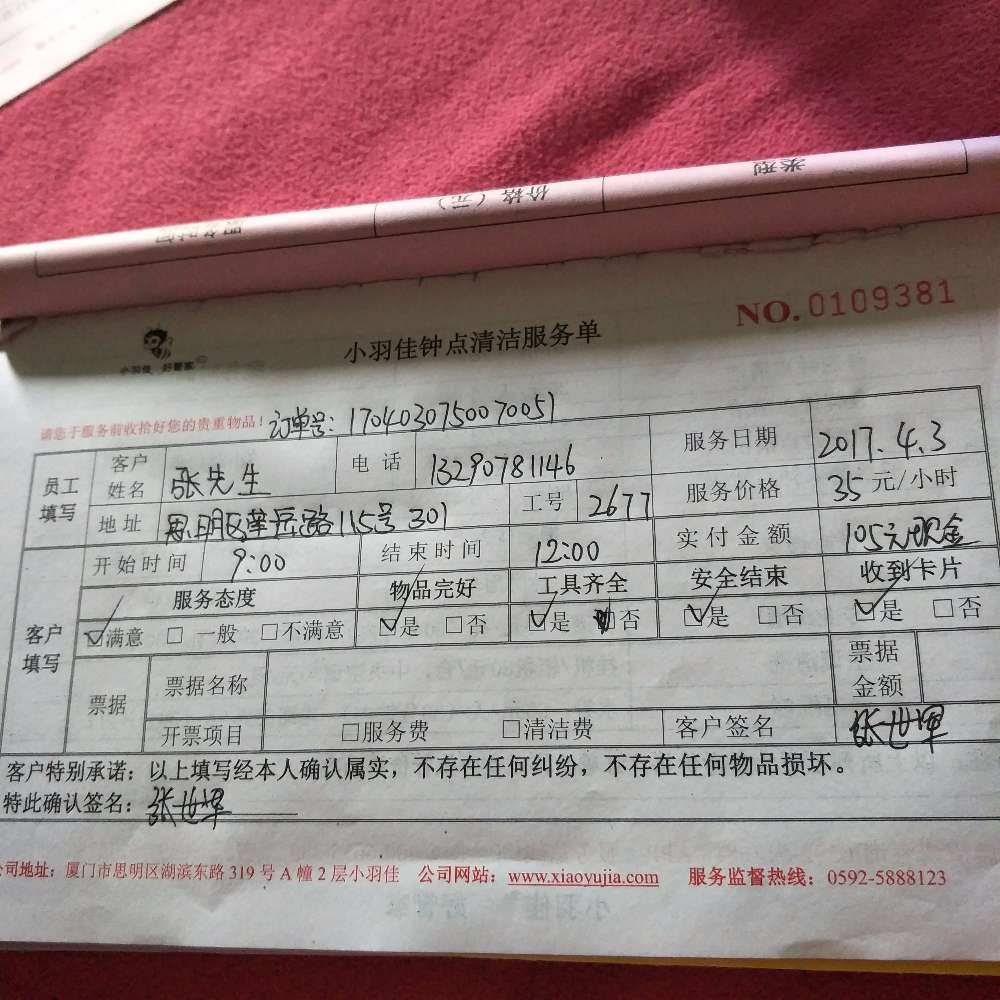 类型
价格（元）
服务时间
NO.0109381
小羽佳 好管家
小羽佳钟点清洁服务单
请您于服务前收拾好您的贵重物品！ 订单号：1704030750070051
员工填写 客户姓名 张先生 电话 13290781146 服务日期 2017.4.3
地址 思明区莲岳路115号301 工号 2677 服务价格 35元/小时
客户填写 开始时间 9:00 结束时间 12:00 实付金额 105元现金
服务态度 物品完好 工具齐全 安全结束 收到卡片
☑满意 □一般 □不满意 ☑是 □否 ☑是 □否 ☑是 □否 ☑是 □否
票据 票据名称 票据金额
开票项目 □服务费 □清洁费 客户签名
客户特别承诺：以上填写经本人确认属实，不存在任何纠纷，不存在任何物品损坏。
特此确认签名：
公司地址：厦门市思明区湖滨东路319号A幢2层小羽佳 公司网站：www.xiaoyujia.com 服务监督热线：0592-5888123